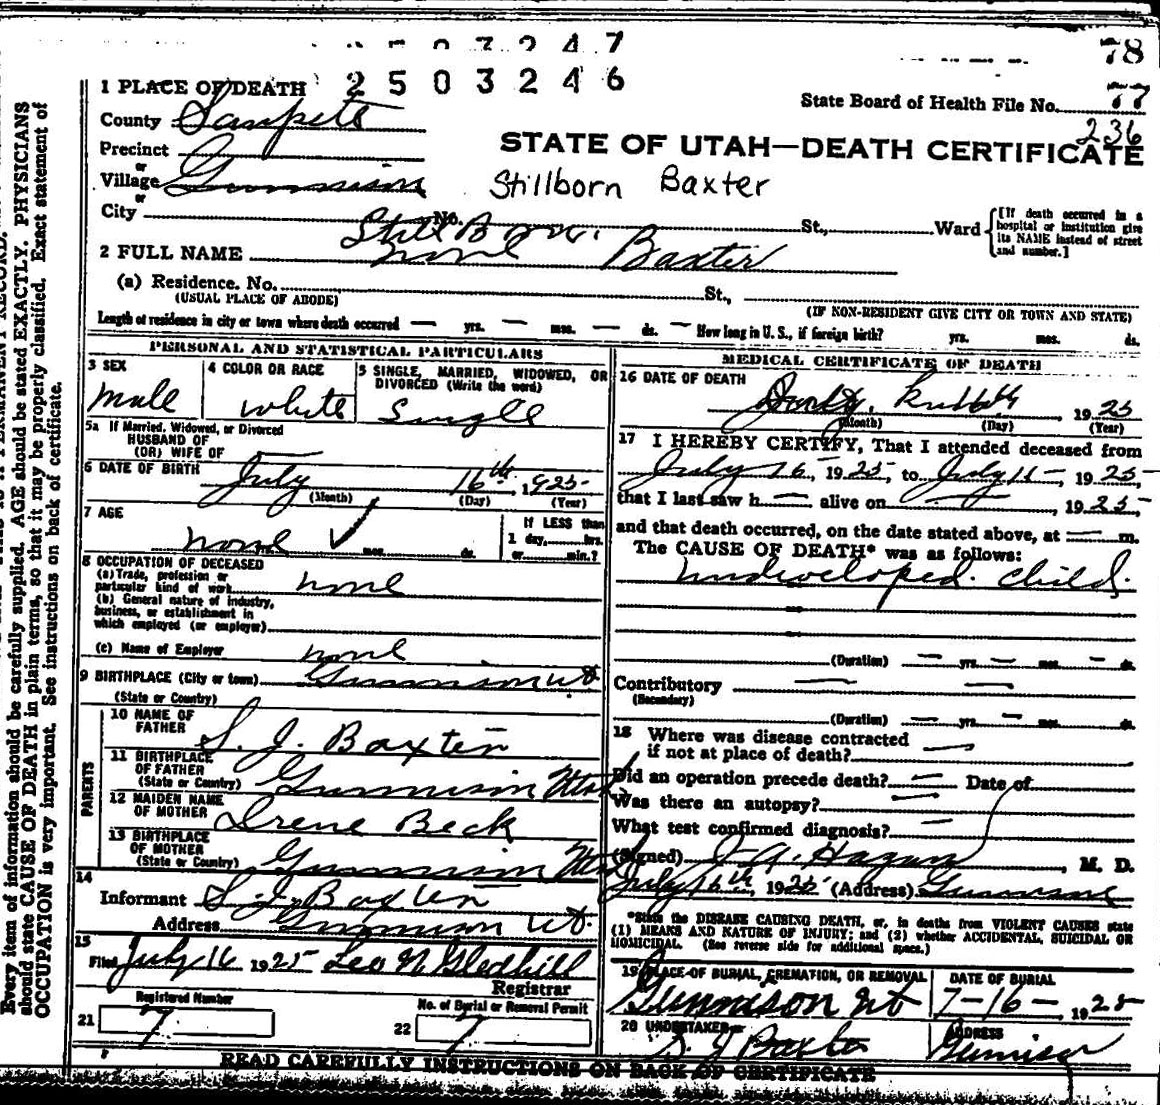 2 5 0 3 2 4 7
78
1 PLACE OF DEATH 2 5 0 3 2 4 6
State Board of Health File No. 77
236
County Sanpete
STATE OF UTAH—DEATH CERTIFICATE
Precinct
or
Village Gunnison
Stillborn Baxter
or
City No. St., Ward [If death occurred in a hospital or institution give its NAME instead of street and number.]
Still Born
2 FULL NAME none Baxter
(a) Residence. No. St.,
(USUAL PLACE OF ABODE) (IF NON-RESIDENT GIVE CITY OR TOWN AND STATE)
Length of residence in city or town where death occurred — yrs. — mos. — ds. — How long in U. S., if foreign birth? yrs. mos. ds.
PERSONAL AND STATISTICAL PARTICULARS
3 SEX 4 COLOR OR RACE 5 SINGLE, MARRIED, WIDOWED, OR DIVORCED (Write the word)
Male White Single
5a If Married, Widowed, or Divorced
HUSBAND OF
(OR) WIFE OF —
6 DATE OF BIRTH July 16th, 1925
(Month) (Day) (Year)
7 AGE
none yrs. mos. ds.
If LESS than
1 day, hrs.
or min.?
8 OCCUPATION OF DECEASED
(a) Trade, profession or
particular kind of work none
(b) General nature of industry,
business, or establishment in
which employed (or employer)
(c) Name of Employer none
9 BIRTHPLACE (City or town) Gunnison Ut
(State or Country)
PARENTS
10 NAME OF
FATHER S. J. Baxter
11 BIRTHPLACE
OF FATHER
(State or Country) Gunnison Utah
12 MAIDEN NAME
OF MOTHER Irene Beck
13 BIRTHPLACE
OF MOTHER
(State or Country) Gunnison Utah
14
Informant S. J. Baxter
Address Gunnison Ut.
15
Filed July 16 1925 Leo N Gledhill
Registrar
Registered Number No. of Burial or Removal Permit
21 7 22 7
MEDICAL CERTIFICATE OF DEATH
16 DATE OF DEATH
July, 1925
(Month) (Day) (Year)
17 I HEREBY CERTIFY, That I attended deceased from
July 16 — 1925 — to July 16 — 1925 —
that I last saw h — alive on — , 1925 —
and that death occurred, on the date stated above, at — m.
The CAUSE OF DEATH* was as follows:
undeveloped. Child.
(Duration) — yrs. — mos. — ds.
Contributory — —
(Secondary)
(Duration) — yrs. — mos. — ds.
18 Where was disease contracted
if not at place of death? —
Did an operation precede death? — Date of
Was there an autopsy? —
What test confirmed diagnosis? —
(Signed) J. A. Hagan, M. D.
July 16th, 1925 (Address) Gunnison
*State the DISEASE CAUSING DEATH, or, in deaths from VIOLENT CAUSES state
(1) MEANS AND NATURE OF INJURY; and (2) whether ACCIDENTAL, SUICIDAL OR
HOMICIDAL. (See reverse side for additional space.)
19 PLACE OF BURIAL, CREMATION, OR REMOVAL DATE OF BURIAL
Gunnison Ut 7-16-1925
20 UNDERTAKER ADDRESS
S. J Baxter Gunnison
READ CAREFULLY INSTRUCTIONS ON BACK OF CERTIFICATE
Every item of information should be carefully supplied. AGE should be stated EXACTLY. PHYSICIANS
should state CAUSE OF DEATH in plain terms, so that it may be properly classified. Exact statement of
OCCUPATION is very important. See instructions on back of certificate.